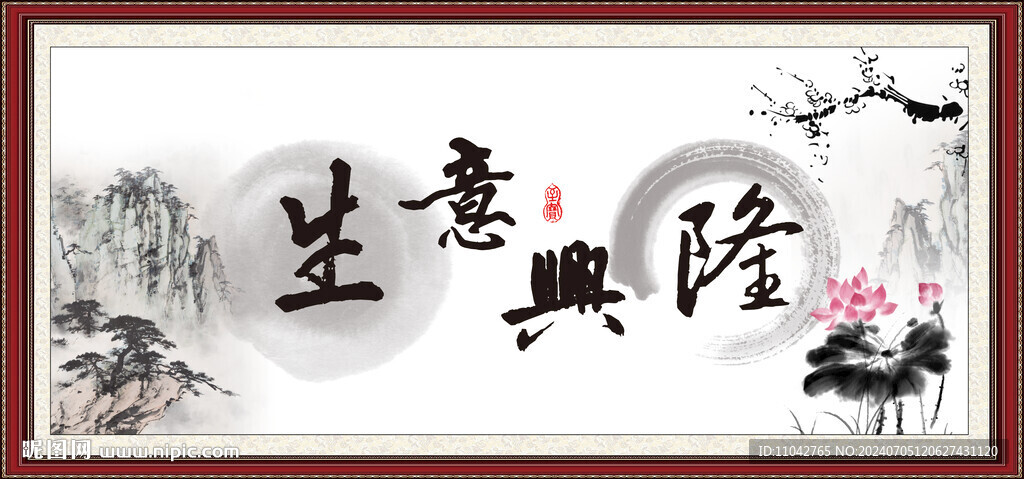 生意興隆
昵图网 www.nipic.com
ID:11042765 NO:20240705120627431120